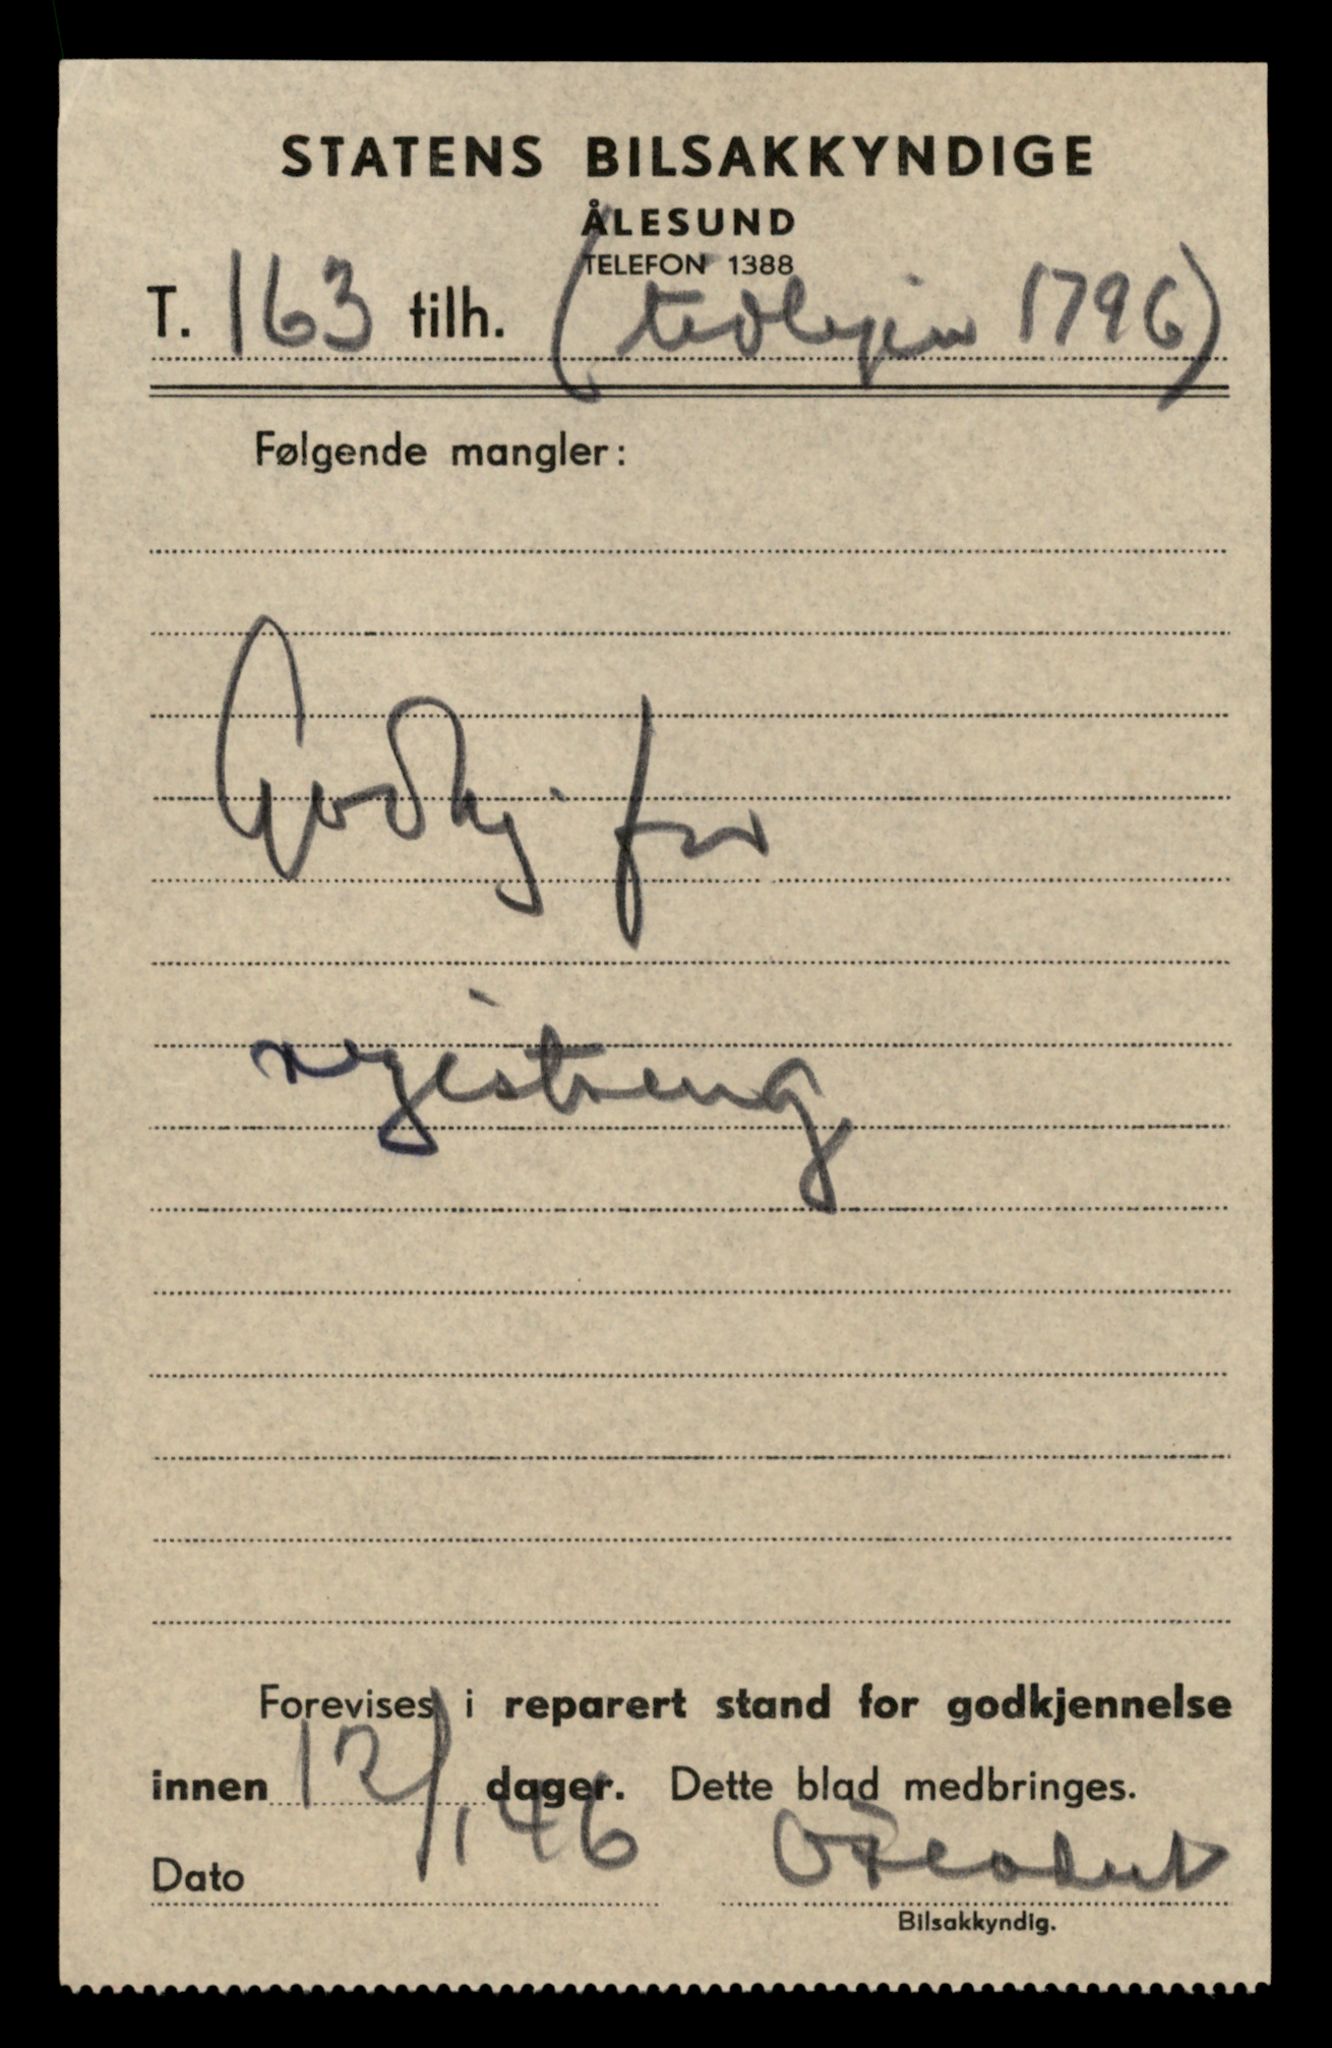 STATENS BILSAKKYNDIGE
ÅLESUND
TELEFON 1388
T. 163 tilh. ( 1796)
Følgende mangler:
Godkj for
registreng
Forevises i reparert stand for godkjennelse
innen dager. Dette blad medbringes.
Dato 12/1 46
Bilsakkyndig.